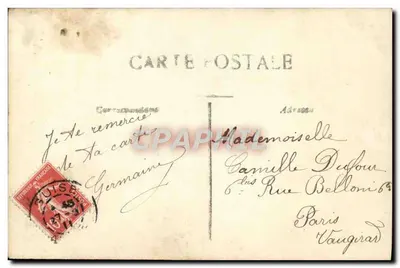 CARTE POSTALE
Correspondance
Adresse
Je te remercie
de ta carte
Germaine
Mademoiselle
Camille Dufour
Rue Belloni
Paris
Vaugirard
CPAPHIL